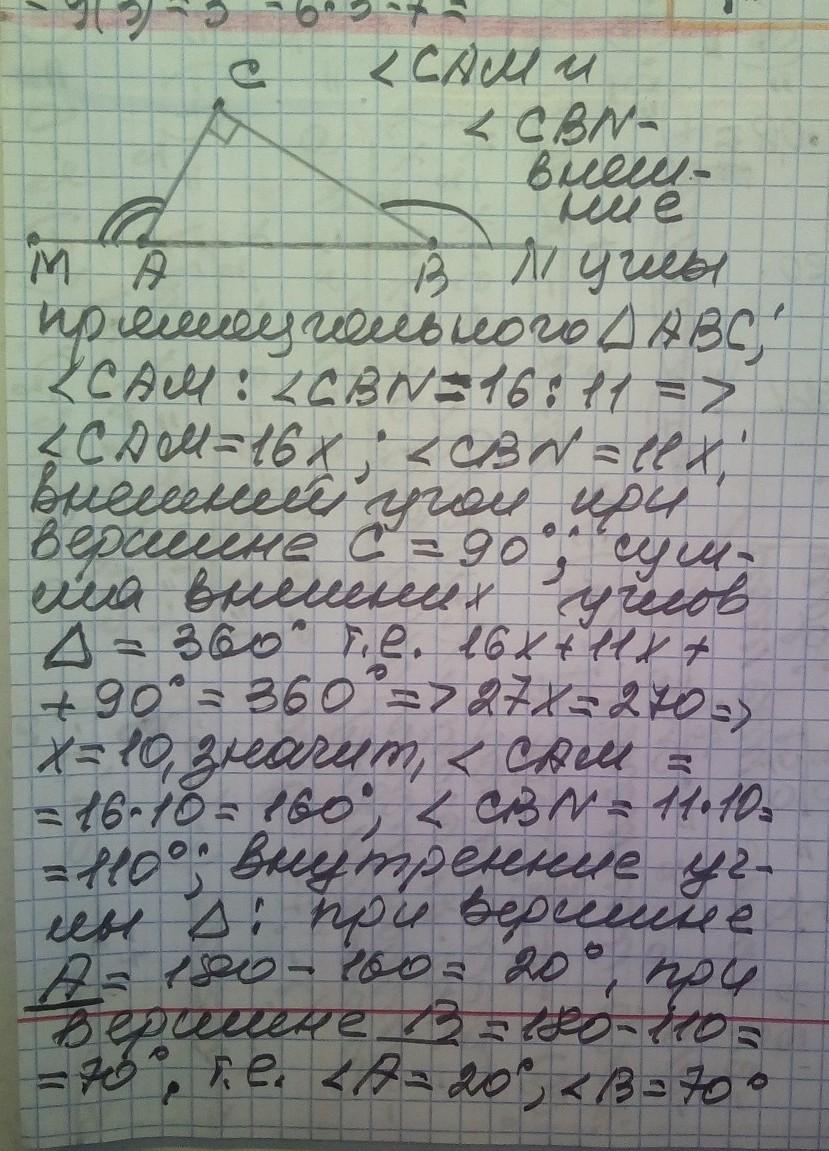 C <CAM и
< CBN-
внеш-
ние
M A B N углы
прямоугольного △ABC;
<CAM : <CBN=16:11 =>
<CAM=16x; <CBN=11x;
внешний угол при
вершине C = 90°; сум-
ма внешних углов
△ = 360° т.е. 16x+11x+
+90°=360°=>27x=270=>
x=10, значит, < CAM =
=16·10=160°, < CBN=11·10=
=110°; внутренние уг-
лы △: при вершине
A= 180-160= 20°, при
вершине B=180-110=
=70°, т.е. <A=20°, <B=70°